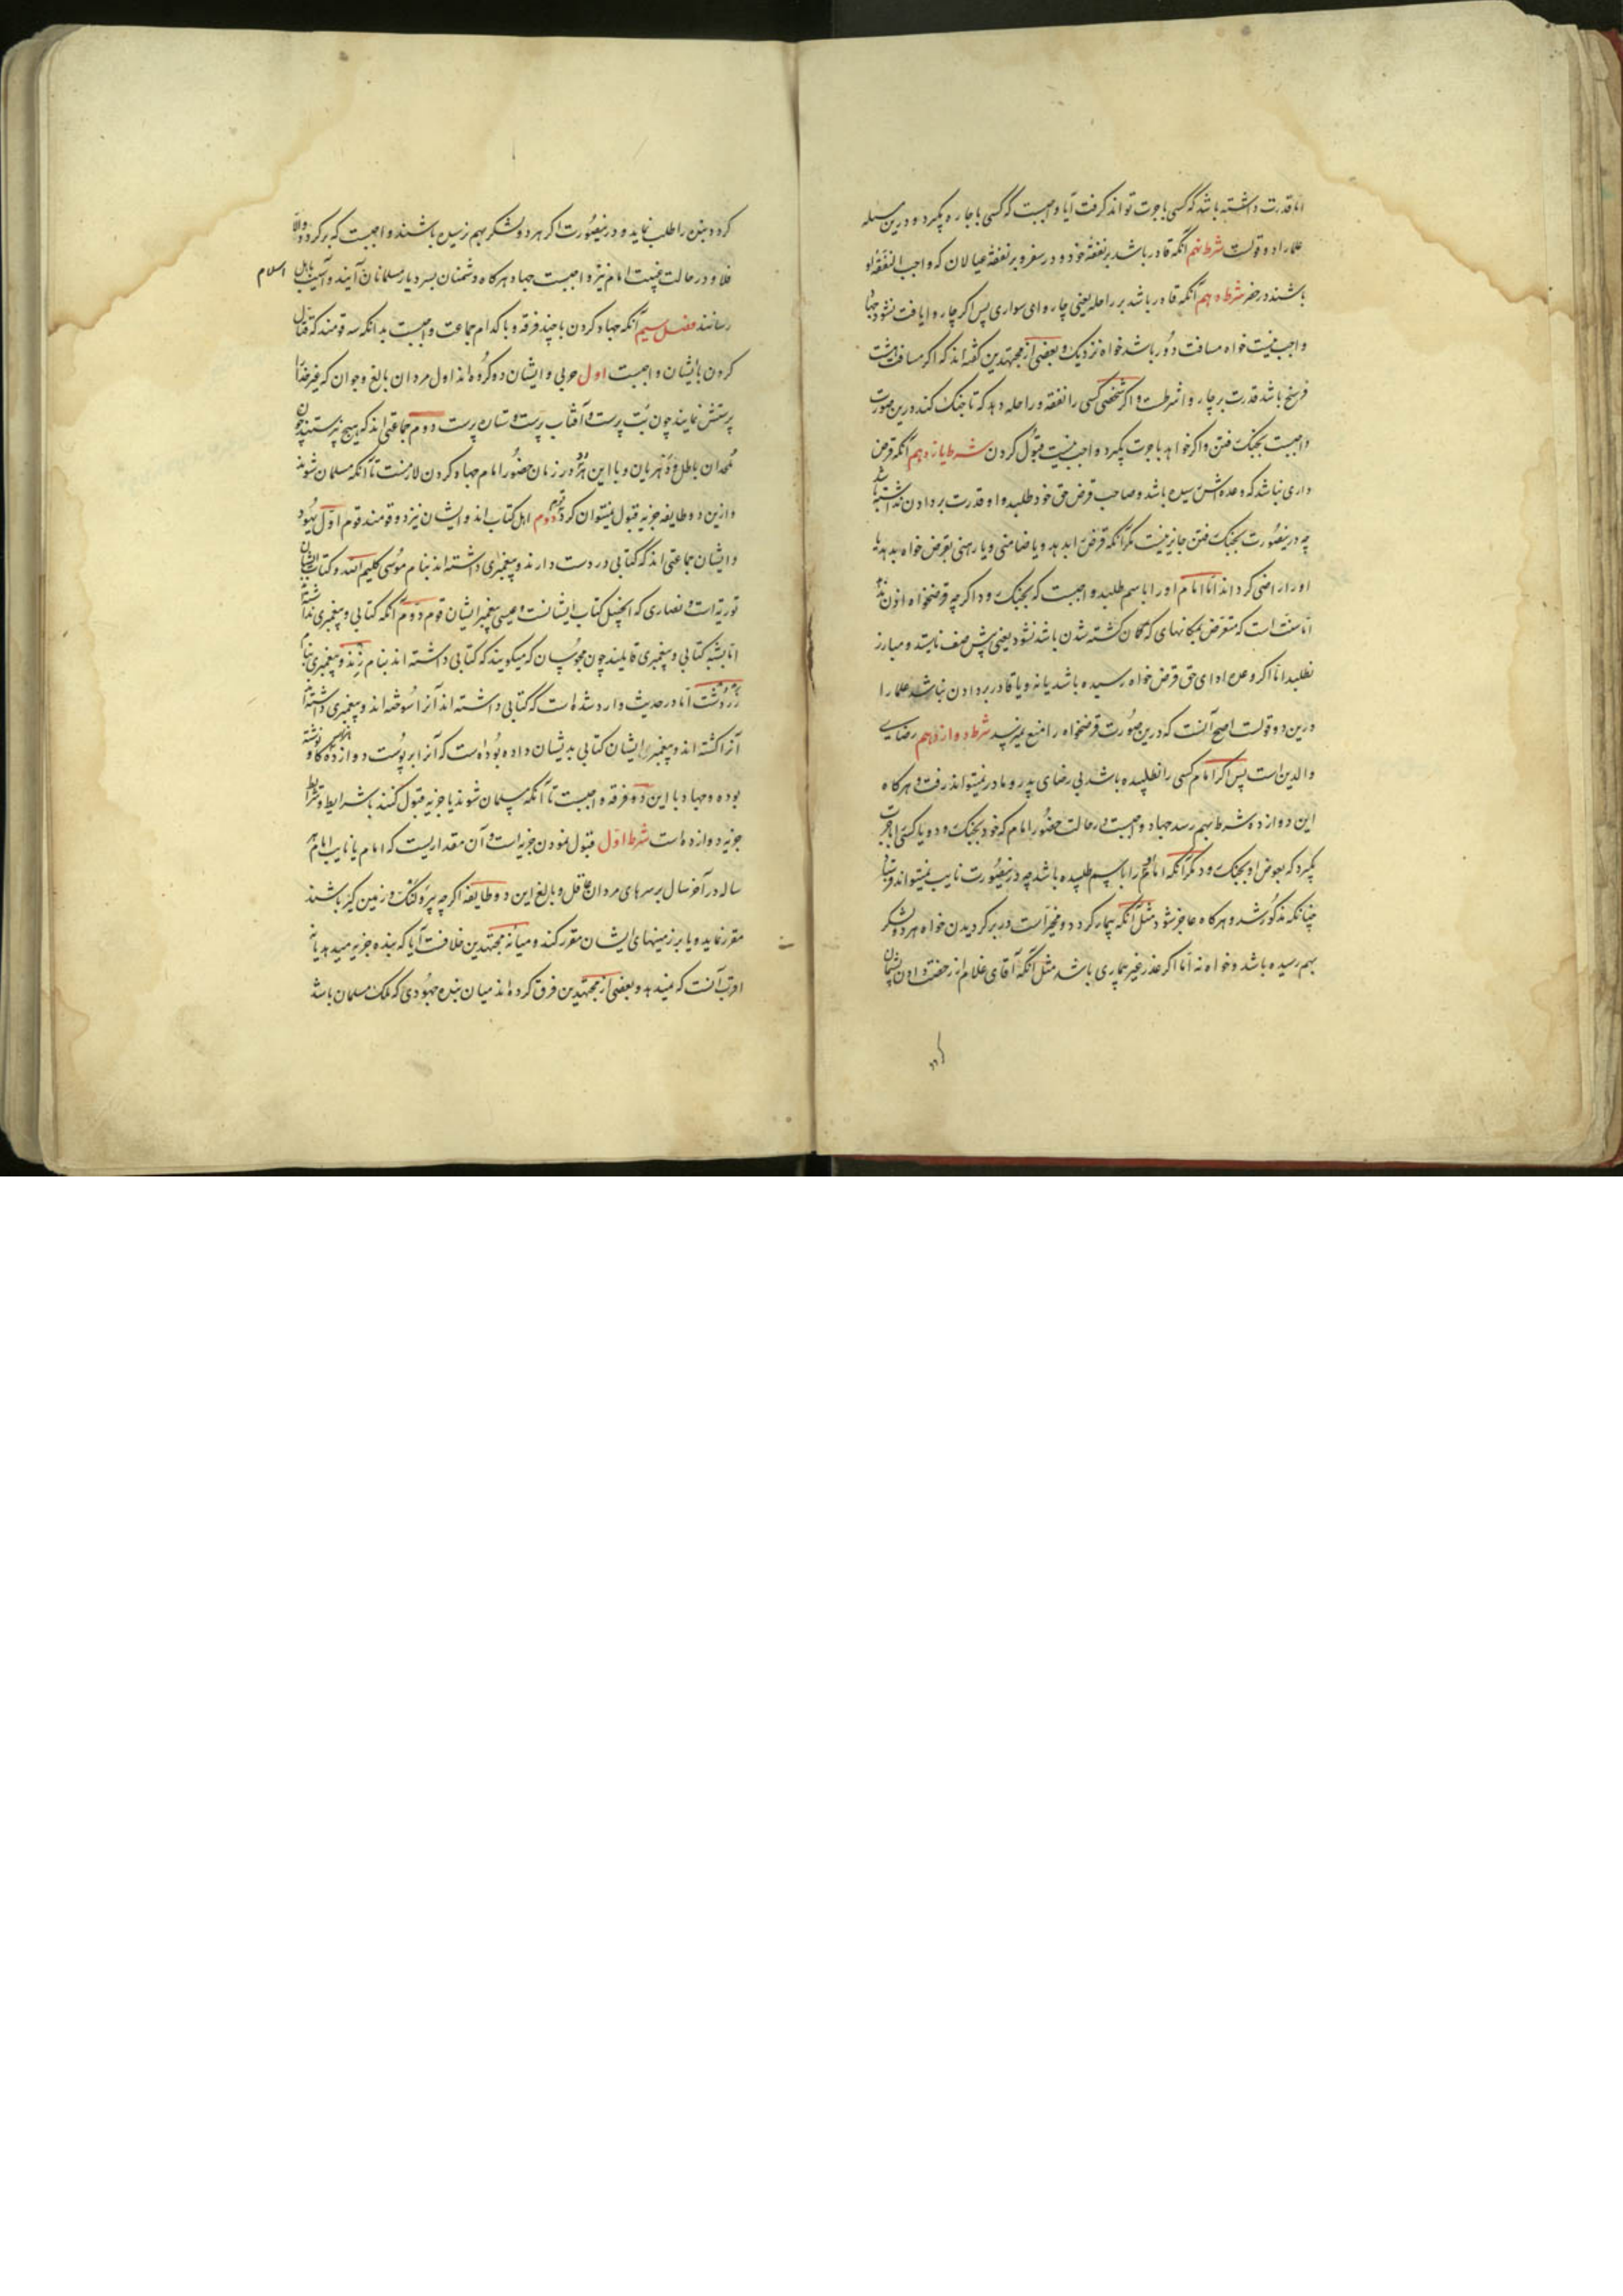 اما قدرت داشته باشد که کسی باجرت تواند گرفت آیا واجبست که کسی باجاره بگیرد و درین مسئله
علما را دو قولست شرط نهم آنکه قادر باشد بر نفقهٔ خود در سفر و بر نفقهٔ عیالان که واجب النفقه او
باشند در حضر شرط دهم آنکه قادر باشد بر راحله یعنی چاروای سواری پس اگر چاروا یافت نشود جهاد
واجب نیست خواه مسافت دور باشد خواه نزدیک و بعضی از مجتهدین گفته‌اند که اگر مسافت هشت
فرسخ باشد قدرت بر چاروا شرطست و اگر شخصی کسی را نفقه و راحله دهد که تا جنک کند درین صورت
واجبست بجنک رفتن و اگر خواهد باجرت بگیرد واجب نیست قبول کردن شرط یازدهم آنکه قرض
داری نباشد که وعده‌اش رسیده باشد و صاحب قرض حق خود طلبد و او قدرت بر دادن نداشته باشد
چه درینصورت بجنک رفتن جایز نیست مکر آنکه قرض را بدهد و یا ضامنی و یا رهنی بقرض خواه بدهد یا
او را راضی کرداند اما اگر امام او را باسم طلبد واجبست که بجنک رود اکر چه قرضخواه اذن ندهد
اما سنت است که متعرض مکانهای که گمان کشته شدن باشد نشود یعنی پیش صف نایستد و مبارز
نطلبد اما اکر وعده ادای حق قرض خواه رسیده باشد یا نه و یا قادر بر دادن نباشد علما را
درین دو قولست اصح آنست که درین صورت قرضخواه را منع نمیرسد شرط دوازدهم رضای
والدین است پس اگر امام کسی را نطلبیده باشد بی رضای پدر و مادر نمیتواند رفت و هرکاه
این دوازده شرط بهم رسد جهاد واجبست در حالت حضور امام که خود بجنک رود و یا کسی را باجرت
بگیرد که بعوض او بجنک رود مکر آنکه امام او را باسم طلبیده باشد چه درینصورت نایب نمیتواند فرستاد
چنانکه مذکور شد و هرکاه عاجز شود مثل آنکه بیمار کردد و مخیر است در برگردیدن خواه هر دو لشکر
بهم رسیده باشد و خواه نه اما اکر عذر غیر بیماری باشد مثل آنکه آقای غلام از رخصت دادن پشیمان
کردد
کردد بین را طلب نماید و درینصورت اکر هر دو لشکر بهم نرسیده باشند واجبست که برکردد والا
فلا و در حالت غیبت امام نیز واجبست جهاد هرکاه دشمنان بسر دیار مسلمانان آیند و آسیب باهل اسلام
رسانند فصل سیم آنکه جهاد کردن با چند فرقه و با کدام جماعت واجبست بدانکه سه قومند که قتال
کردن بایشان واجبست اول حربی و ایشان دو کروه‌اند اول مردان بالغ و جوان که غیر خدا را
پرستش نمایند چون بت پرست و آفتاب پرست و ستاره پرست دوم جماعتی اند که هیچ نپرستند چون
ملحدان باطل و دهریان و با این هر دو در زمان حضور امام جهاد کردن لازمست تا آنکه مسلمان شوند
و ازین دو طایفه جزیه قبول نمیتوان کرد قوم دوم اهل کتاب‌اند و ایشان نیز دو قومند قوم اول یهود
و ایشان جماعتی اند که کتابی در دست دارند و پیغمبری داشته‌اند بنام موسی کلیم الله و کتاب ایشان
توریة است و نصاری که انجیل کتاب ایشانست و عیسی پیغمبر ایشان قوم دوم آنکه کتابی و پیغمبری نداشته‌اند
اما بشبه کتابی و پیغمبری قایلند چون مجوسیان که میگویند که کتابی داشته‌اند بنام زند و پیغمبری بنام
زردشت اما در حدیث وارد شده است که کتابی داشته‌اند آنرا سوخته‌اند و پیغمبری داشته‌اند
آنرا کشته‌اند و پیغمبر ایشان کتابی بدیشان داده بوده است که آنرا بر پوست دوازده کاو نوشته
بوده و جهاد با این دو فرقه واجبست تا آنکه مسلمان شوند یا جزیه قبول کنند بشرایط و شرایط
جزیه دوازده است شرط اول قبول نمودن جزیه است و آن مقداریست که امام یا نایب امام هر
ساله در آخر سال بر سرهای مردان عاقل و بالغ این دو طایفه اکر چه پیر و لنک و زمین کیر باشند
مقرر نماید و یا بر زمینهای ایشان مقرر کند و میانه مجتهدین خلافست آیا که بنده جزیه میدهد یا نه
اقرب آنست که نمیدهد و بعضی از مجتهدین فرق کرده‌اند میان بنده جهودی که ملک مسلمان باشد